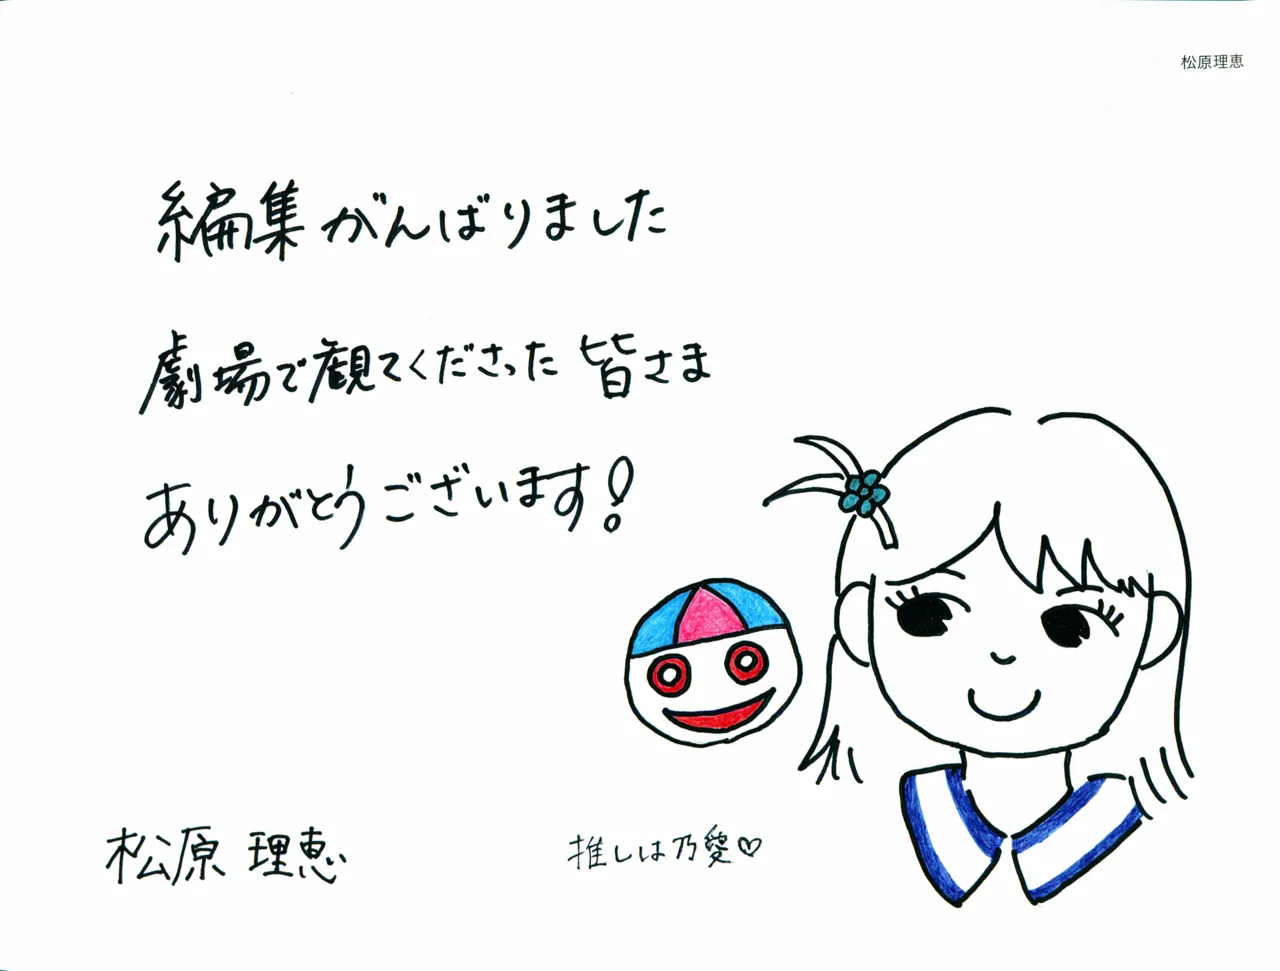 松原理恵
編集がんばりました
劇場で観てくださった皆さま
ありがとうございます!
松原 理恵
推しは乃愛♡